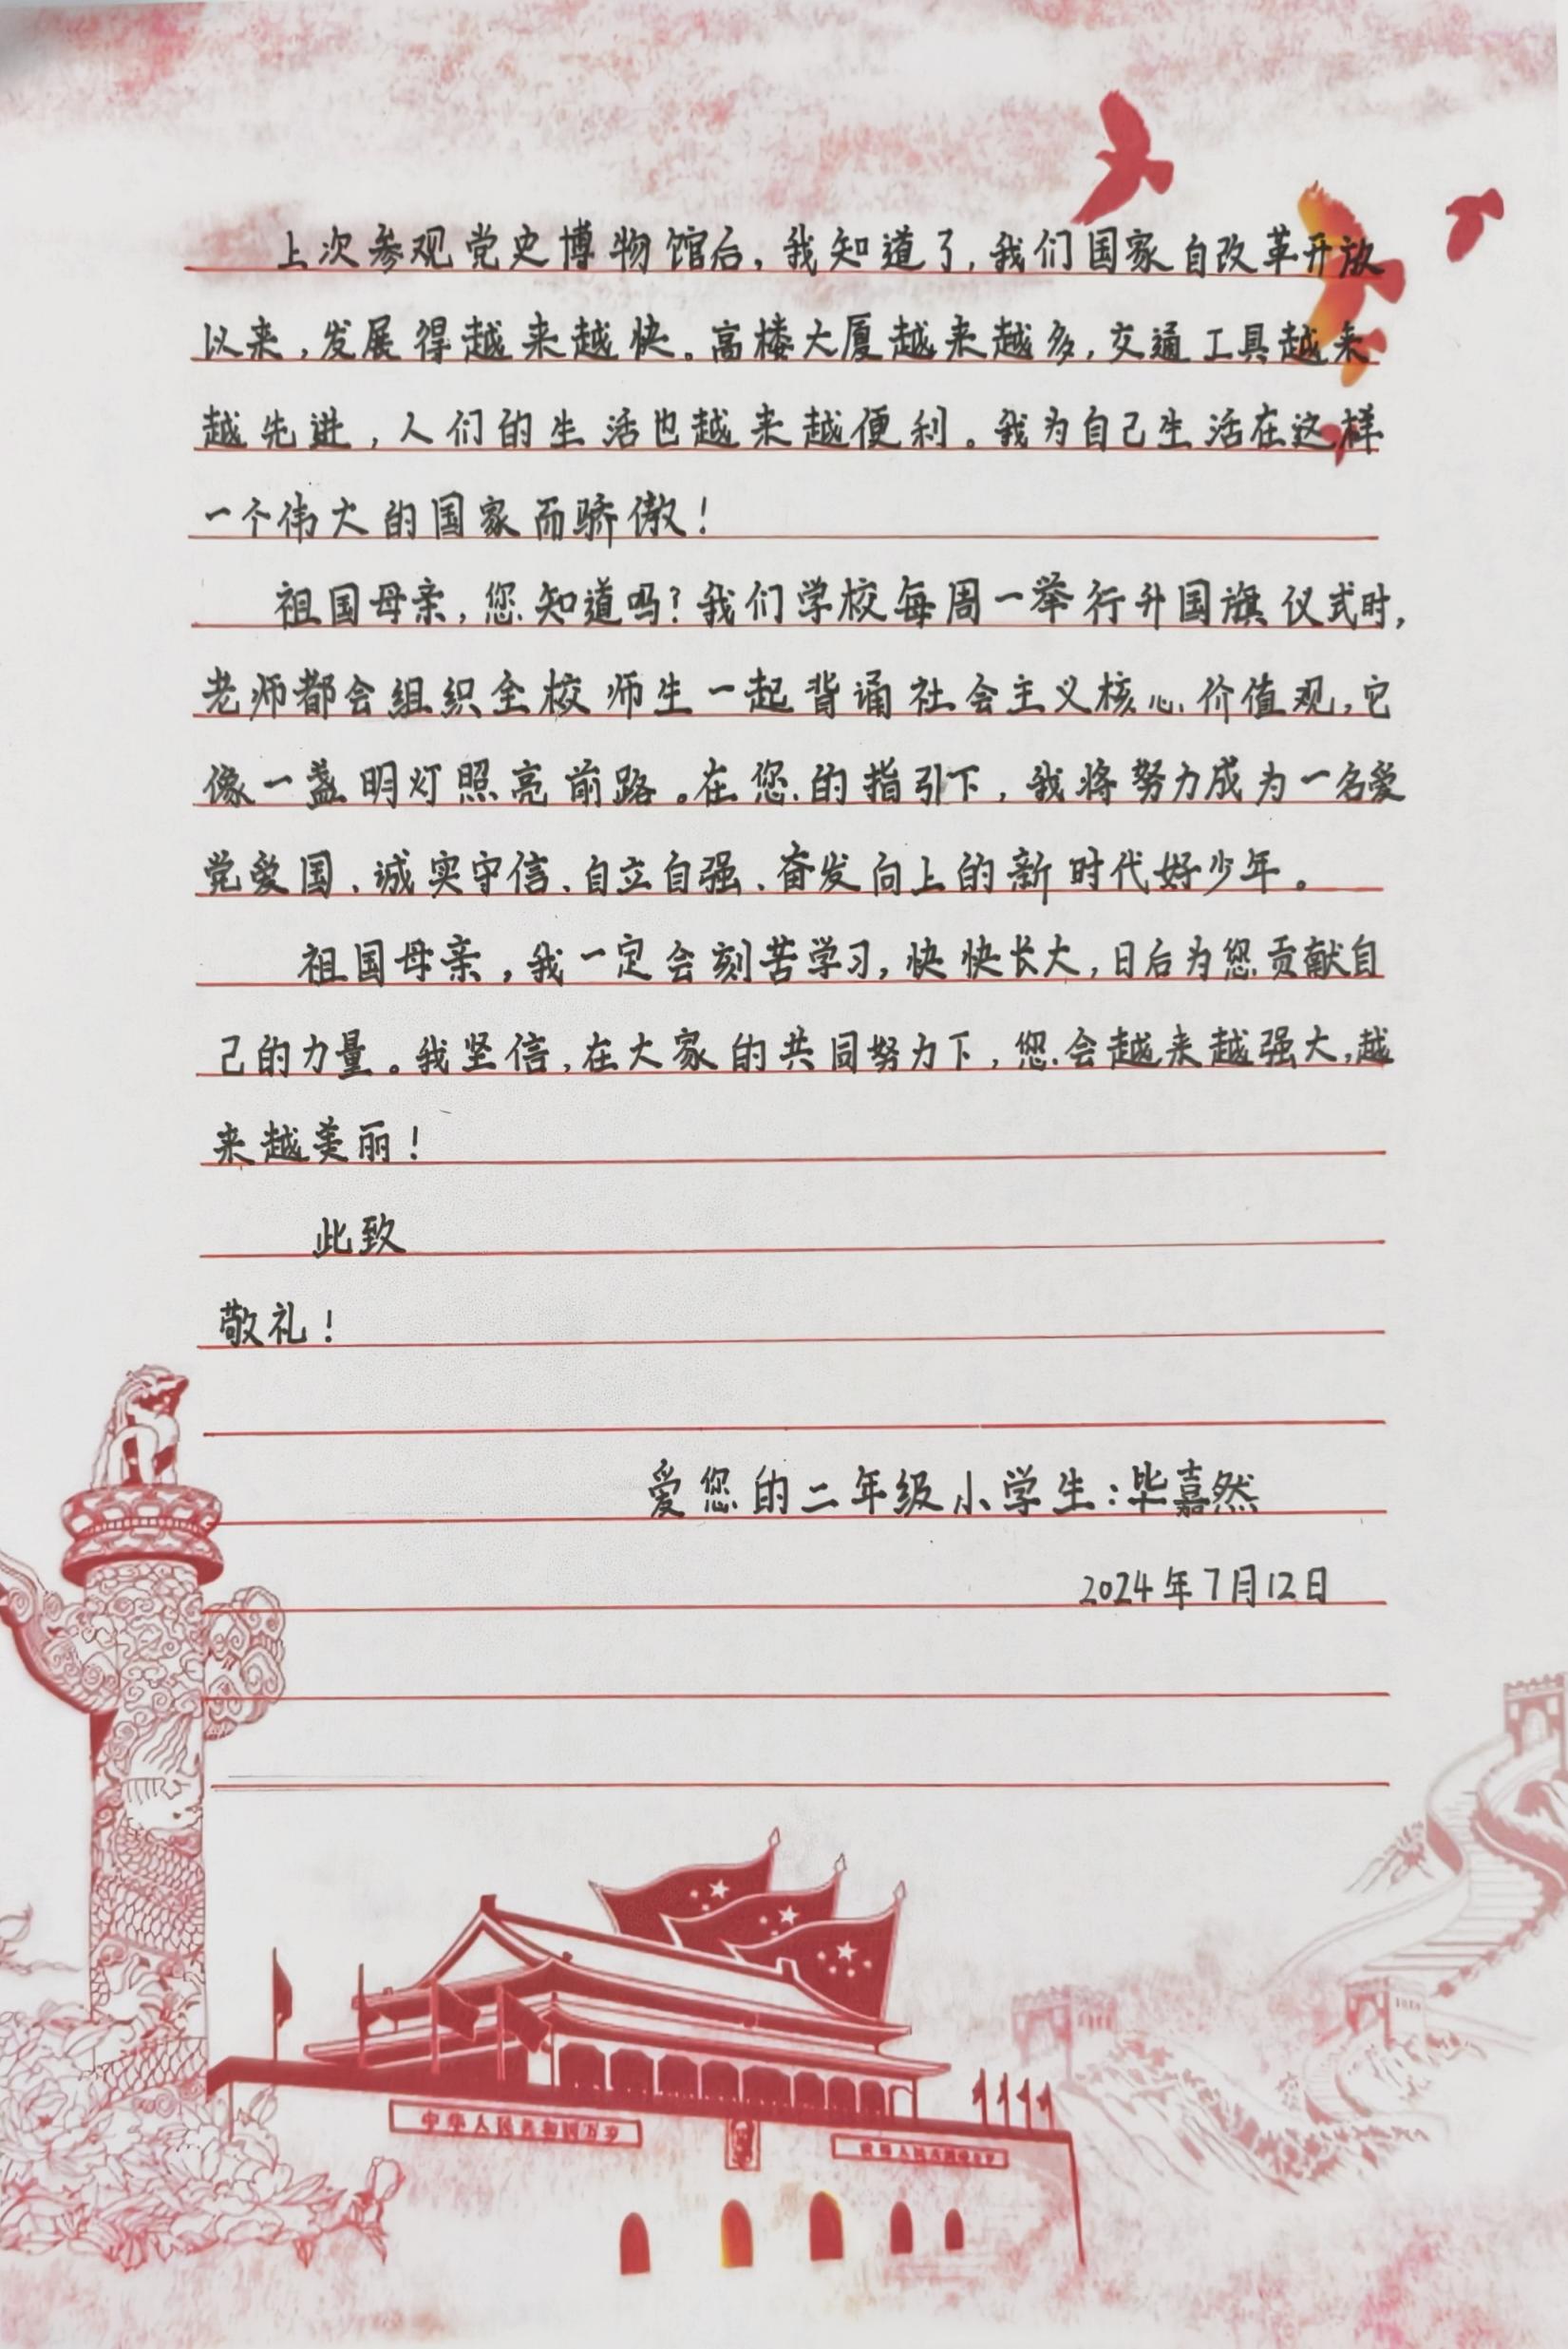 上次参观党史博物馆后，我知道了，我们国家自改革开放
以来，发展得越来越快。高楼大厦越来越多，交通工具越来
越先进，人们的生活也越来越便利。我为自己生活在这样
一个伟大的国家而骄傲！
祖国母亲，您知道吗？我们学校每周一举行升国旗仪式时，
老师都会组织全校师生一起背诵社会主义核心价值观，它
像一盏明灯照亮前路。在您的指引下，我将努力成为一名爱
党爱国、诚实守信、自立自强、奋发向上的新时代好少年。
祖国母亲，我一定会刻苦学习，快快长大，日后为您贡献自
己的力量。我坚信，在大家的共同努力下，您会越来越强大，越
来越美丽！
此致
敬礼！
爱您的二年级小学生：毕嘉然
2024年7月12日
中华人民共和国万岁